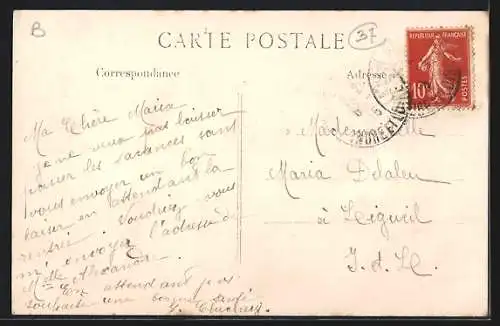 B
37
CARTE POSTALE
Correspondance
Adresse
REPUBLIQUE FRANÇAISE
10
POSTES
Ma Chère Maria
je ne veux pas laisser
passer les vacances sans
vous envoyer un bon
baiser en attendant la
rentrée. Voudriez vous
m'envoyer l'adresse de
Melle Alexandre
En attendant je vs
souhaite une bonne santé
Mademoiselle
Maria Delaleu
à Ligueil
I. d. L.